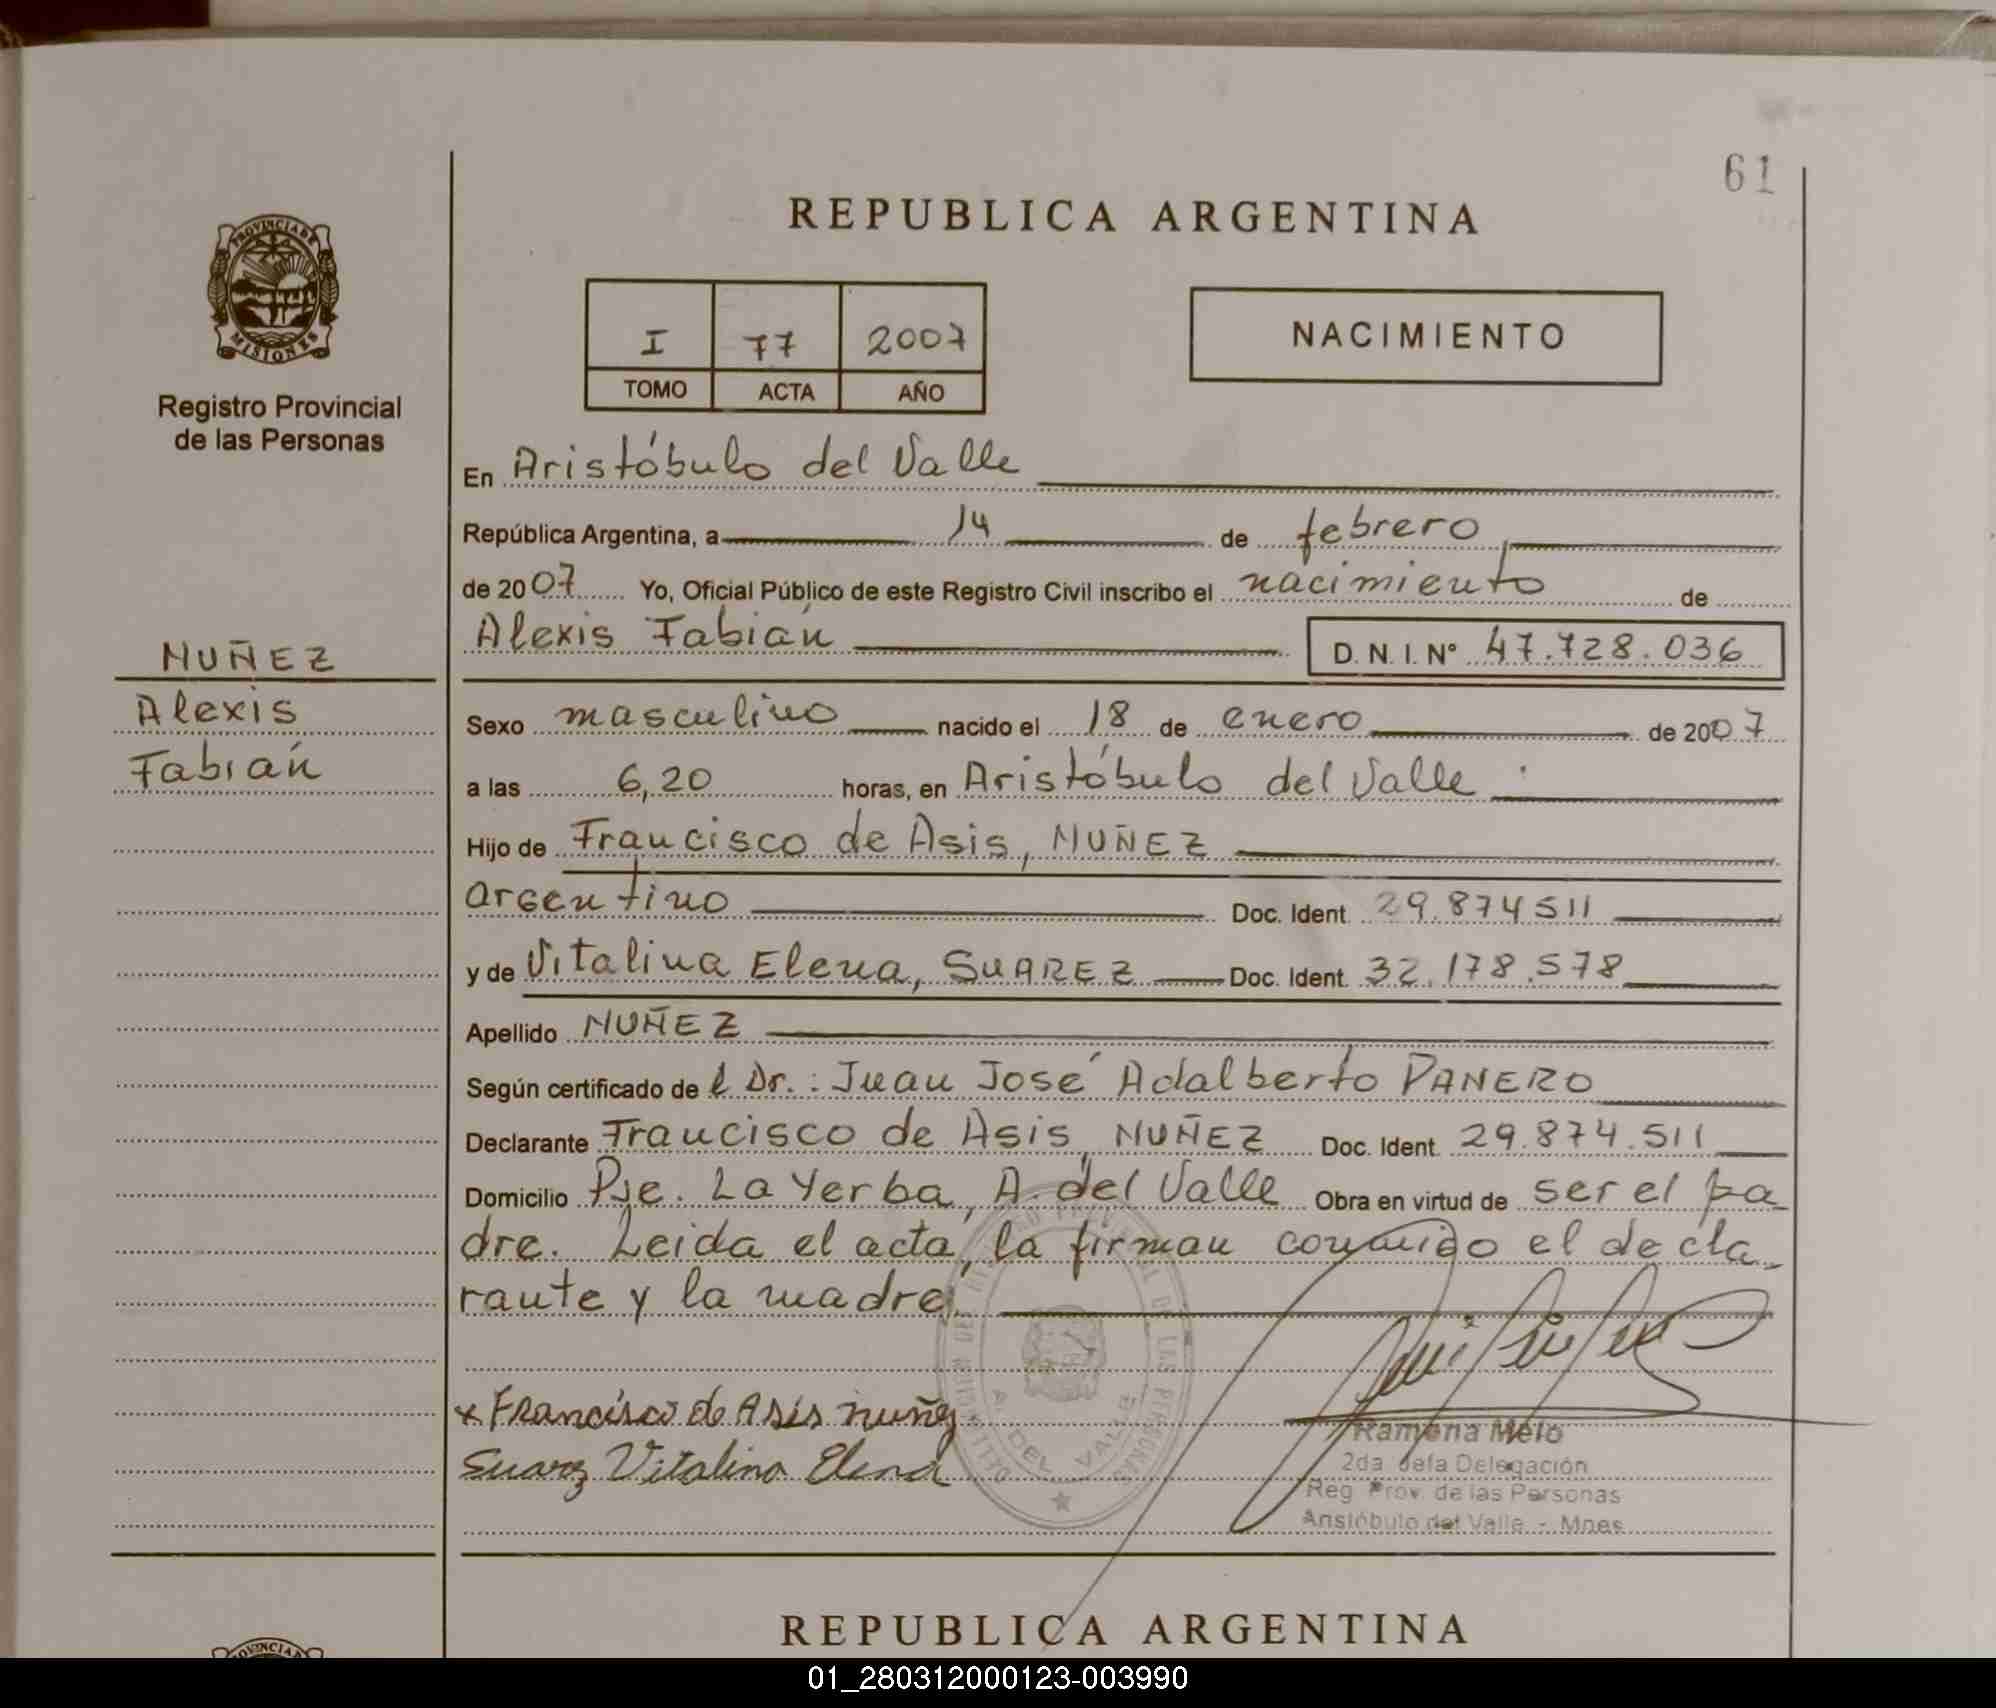 61
REPUBLICA ARGENTINA
PROVINCIA DE
MISIONES
Registro Provincial
de las Personas
I 77 2007
TOMO ACTA AÑO
NACIMIENTO
En Aristóbulo del Valle
República Argentina, a 14 de febrero
de 2007 Yo, Oficial Público de este Registro Civil inscribo el nacimiento de
Alexis Fabián D. N. I. N° 47.728.036
NUÑEZ
Alexis
Fabián
Sexo masculino nacido el 18 de enero de 2007
a las 6,20 horas, en Aristóbulo del Valle
Hijo de Francisco de Asis, NUÑEZ
argentino Doc. Ident. 29.874511
y de Vitalina Elena, SUAREZ Doc. Ident. 32.178.578
Apellido NUÑEZ
Según certificado de l Dr.: Juan José Adalberto PANERO
Declarante Francisco de Asis, NUÑEZ Doc. Ident. 29.874.511
Domicilio Pje. La Yerba, A. del Valle Obra en virtud de ser el pa
dre. Leida el acta, la firman conmigo el decla
rante y la madre.
x Francisco de Asis nuñez
Suarez Vitalina Elena
A. DEL VALLE
Ramona Melo
2da. Jefa Delegación
Reg. Prov. de las Personas
Aristóbulo del Valle - Mnes
REPUBLICA ARGENTINA
01_280312000123-003990